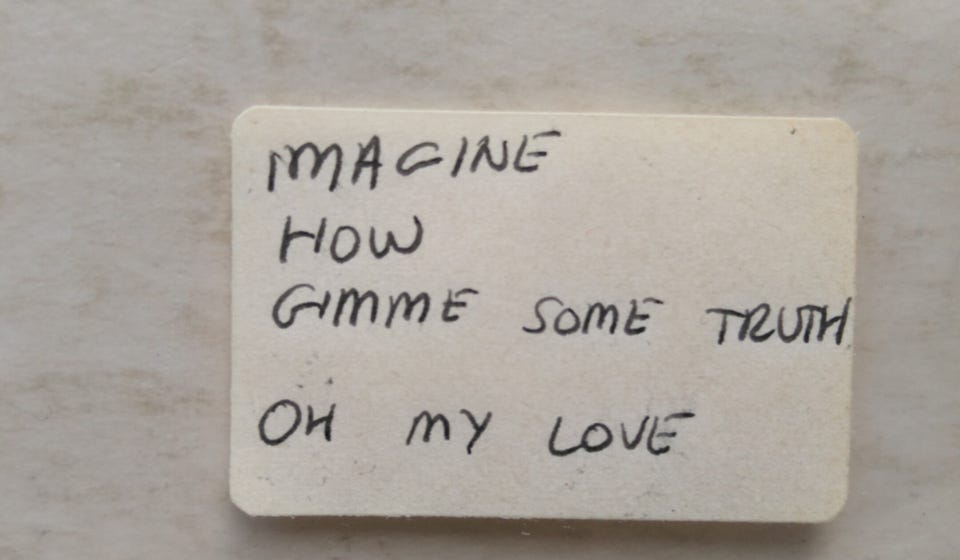 IMAGINE
HOW
GIMME SOME TRUTH
OH MY LOVE